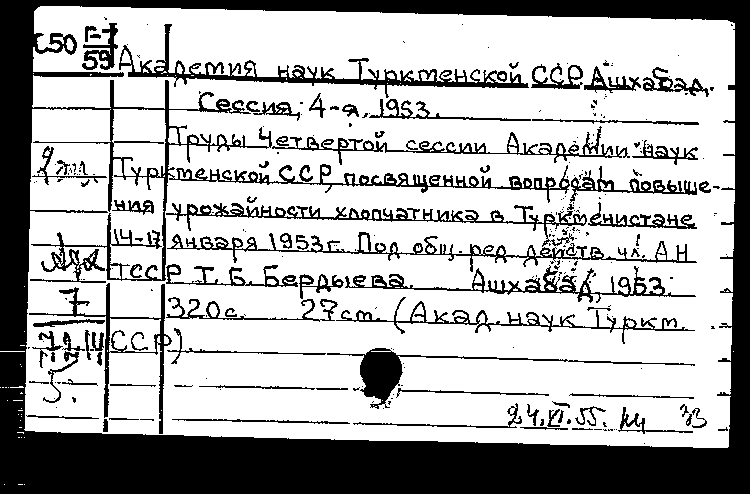 С50 Г-7
59
Академия наук Туркменской ССР. Ашхабад.
Сессия, 4-я, 1953.
Труды Четвертой сессии Академии наук
2 экз. Туркменской ССР, посвященной вопросам повыше-
ния урожайности хлопчатника в Туркменистане
14-17 января 1953г. Под общ. ред. действ. чл. АН
ТССР Т. Б. Бердыева. Ашхабад, 1953.
7 320с. 27см. (Акад. наук Туркм.
ССР).
5.
24.VI.55.